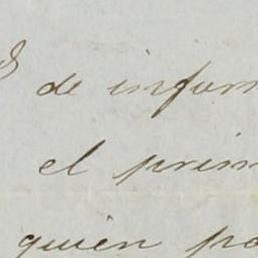 de infor
el prim
quien po